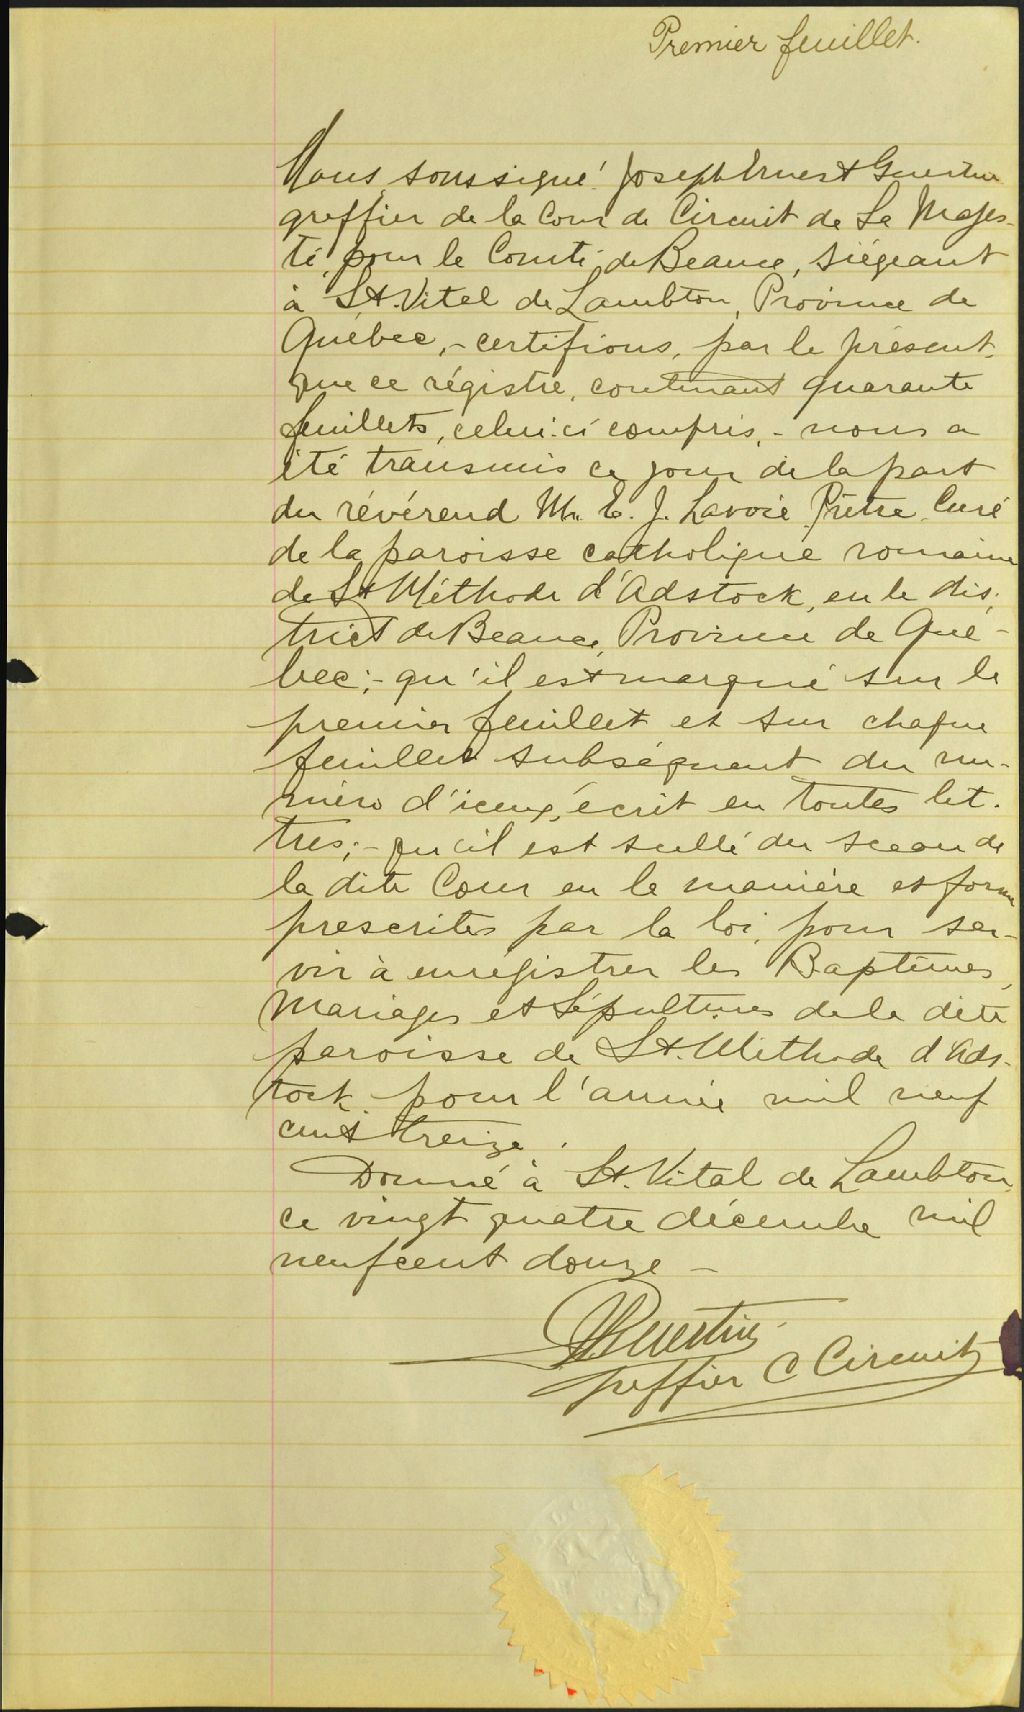 Premier feuillet.
Nous, soussigné, Joseph Ernest Guertin
greffier de la Cour de Circuit de Sa Majes-
té, pour le Comté de Beauce, siégeant
à St. Vital de Lambton, Province de
Québec, - certifions, par le présent,
que ce régistre, contenant quarante
feuillets, celui-ci compris, - nous a
été transmis ce jour de la part
du révérend Mr. E. J. Lavoie Prêtre Curé
de la paroisse catholique romaine
de St Méthode d'Adstock, en le dis-
trict de Beauce, Province de Qué-
bec; - qu'il est marqué sur le
premier feuillet et sur chaque
feuillet subséquent du nu-
méro d'iceux, écrit en toutes let-
tres; - qu'il est scellé du sceau de
la dite Cour en la manière et forme
prescrites par la loi, pour ser-
vir à enregistrer les Baptêmes,
Mariages et Sépultures de la dite
paroisse de St. Méthode d'Ads-
tock pour l'année mil neuf
cent treize.
Donné à St. Vital de Lambton,
ce vingt quatre décembre mil
neuf cent douze -
Guertin
greffier C Circuit